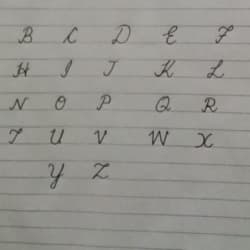 B C D E F
H I J K L
N O P Q R
T U V W X
Y Z